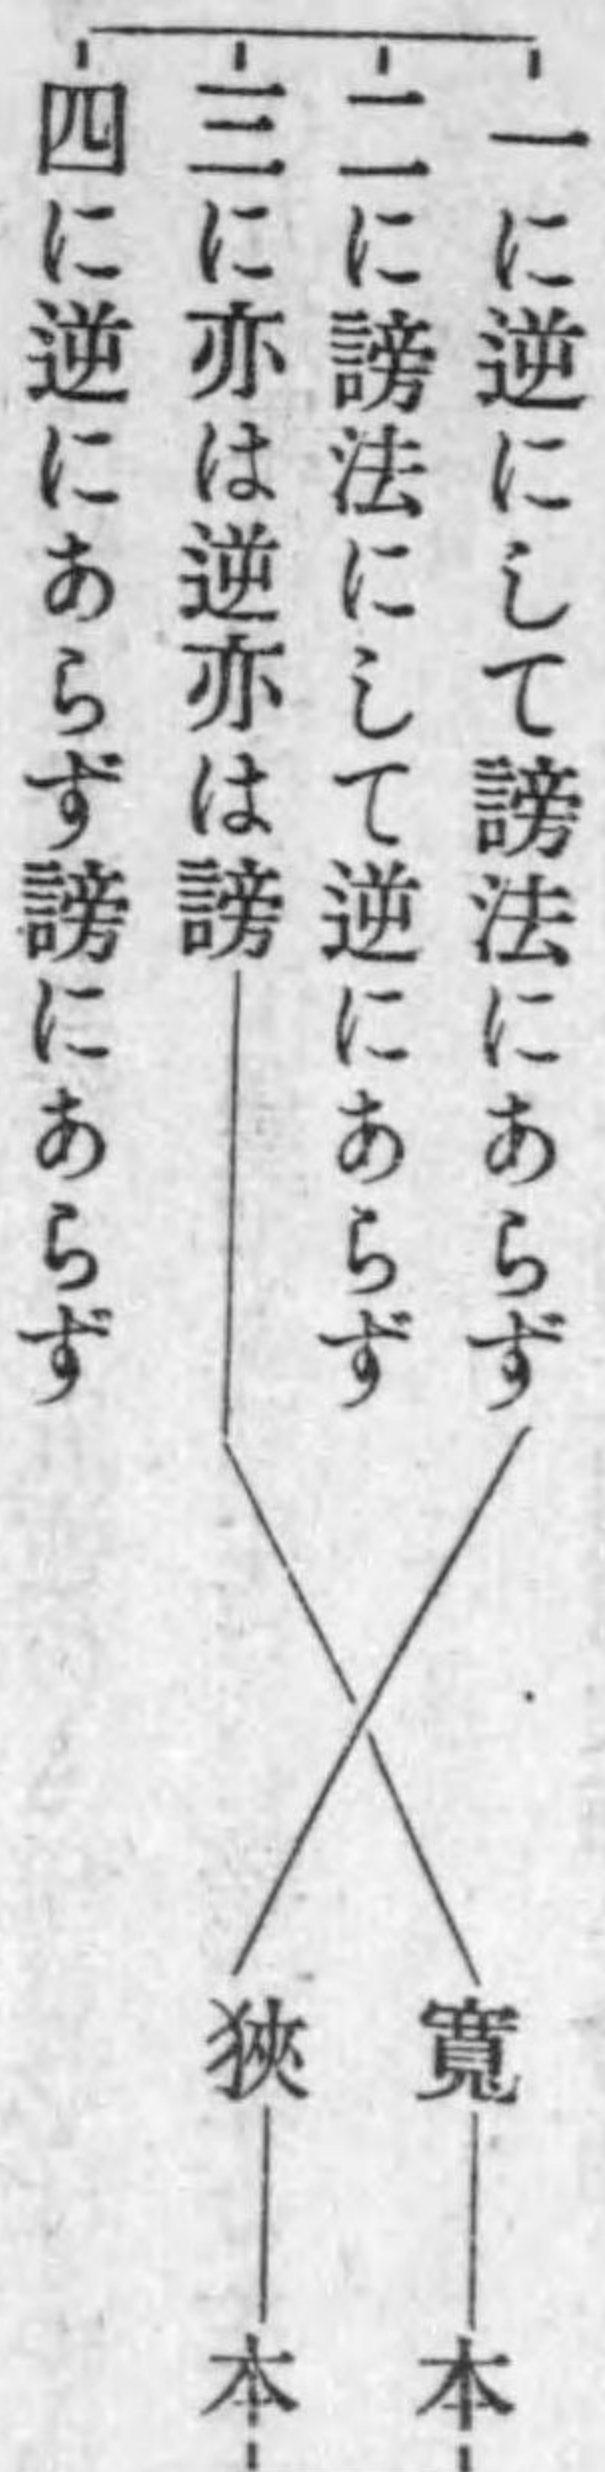 一に逆にして謗法にあらず
二に謗法にして逆にあらず
三に亦は逆亦は謗
四に逆にあらず謗にあらず
寬本
狹本